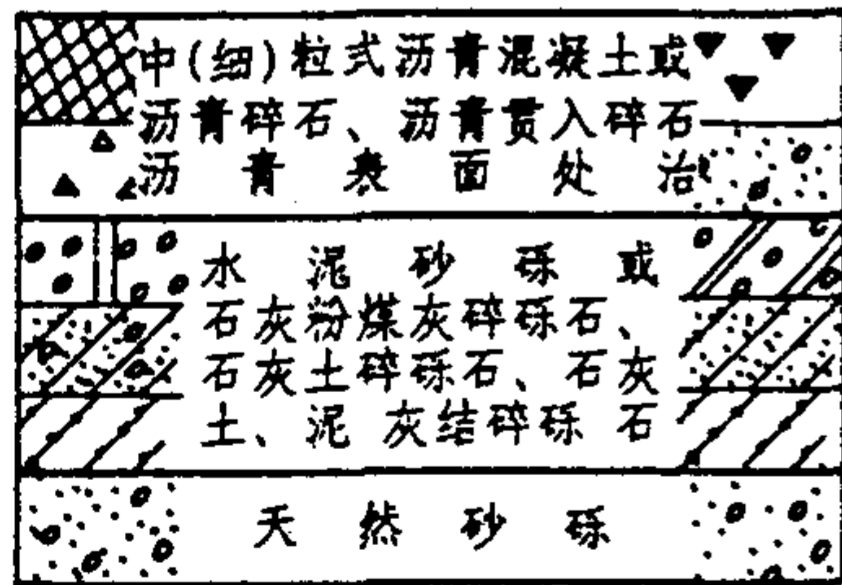 中(细)粒式沥青混凝土或
沥青碎石、沥青贯入碎石
沥青表面处治
水泥砂砾或
石灰粉煤灰碎砾石、
石灰土碎砾石、石灰
土、泥灰结碎砾石
天然砂砾